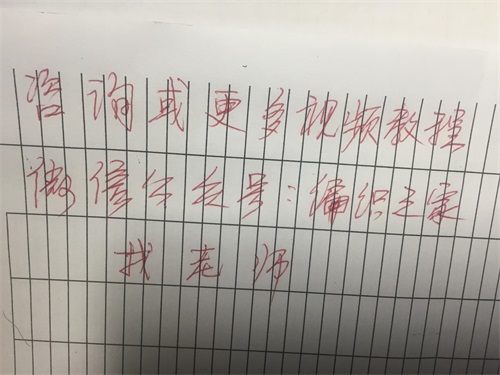 咨询或更多视频教程
微信公众号：编织之家
找老师